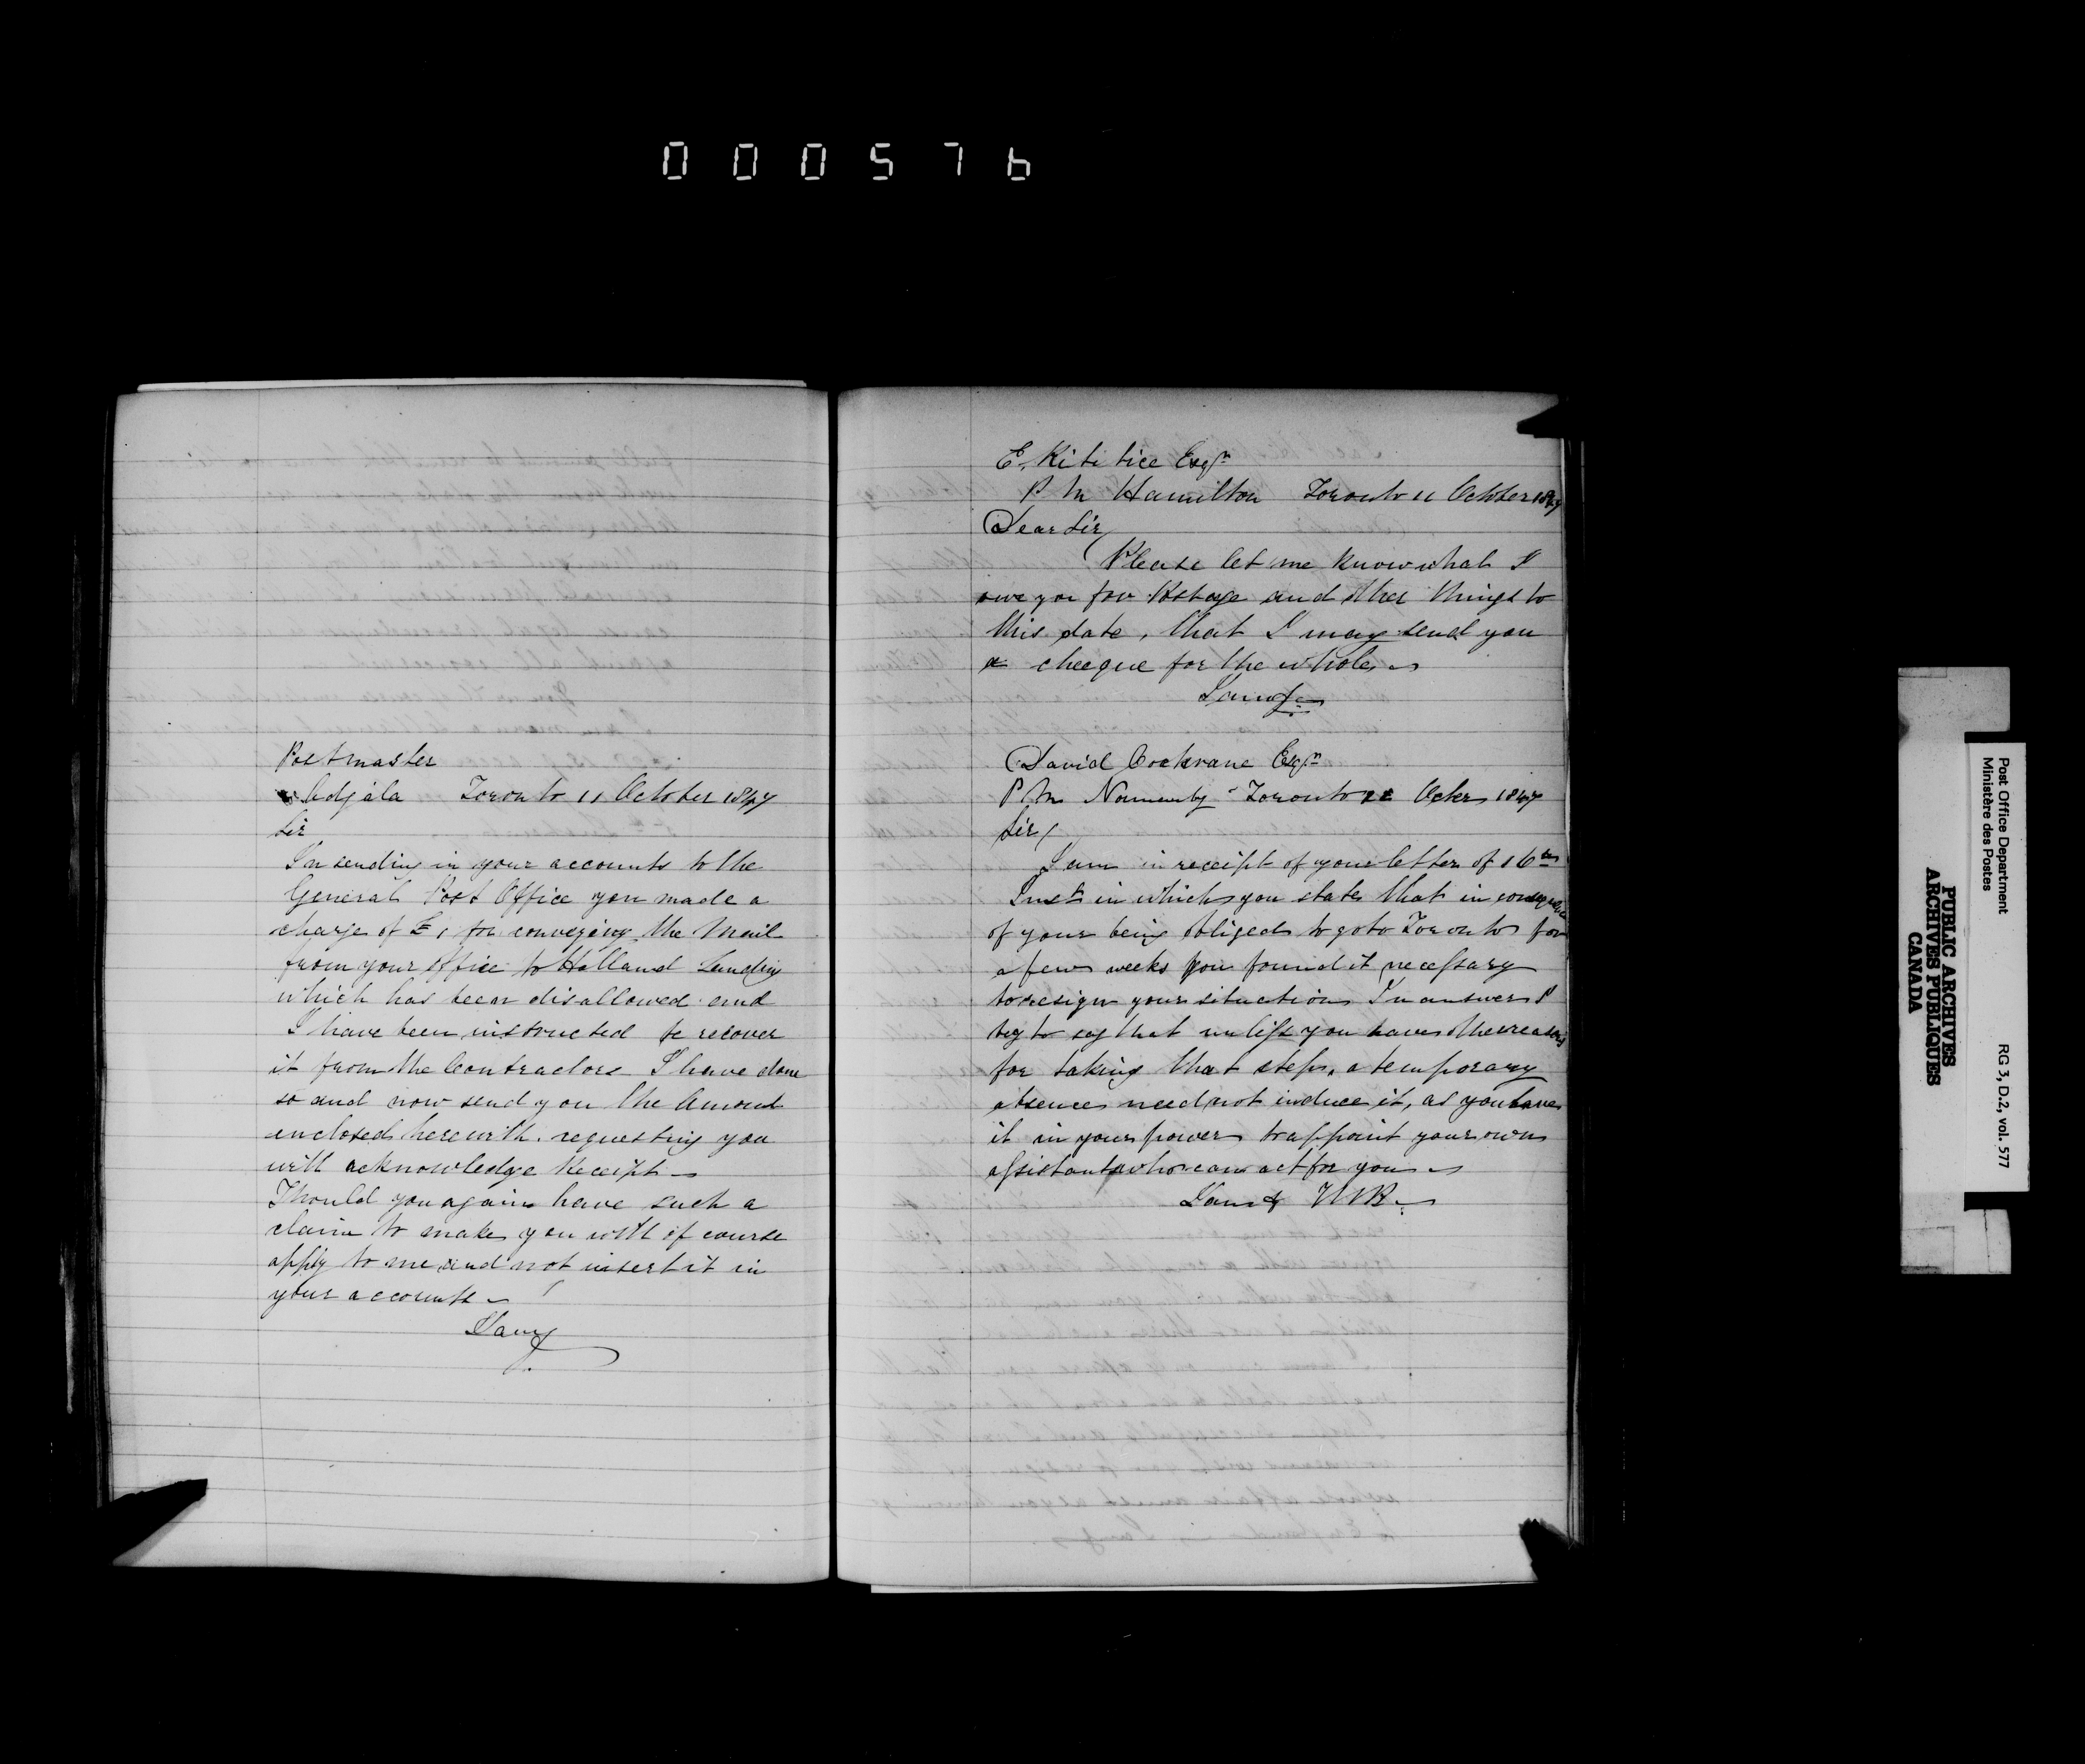 000576
Postmaster
Adjala Toronto 11 October 1847
Sir
In sending in your accounts to the
General Post Office you made a
charge of £1 for conveying the Mail
from your office to Holland Landing
which has been disallowed and
I have been instructed to recover
it from the Contractors I have done
so and now send you the Amount
enclosed herewith. requesting you
will acknowledge Receipt
Should you again have such a
claim to make you will of course
apply to me and not insert it in
your accounts
I am &
E. Ritchie Esqr
P M Hamilton Toronto 11 October 1847
Dear Sir
Please let me know what I
owe you for Postage and other things to
this date, that I may send you
a checque for the whole
I am &
David Cochrane Esqr
P M Normanby Toronto Octr 1847
Sir
I am in receipt of your letter of
Inst in which you state that in consequence
of your being obliged to go to Toronto for
a few weeks you found it necessary
to resign your situation In answer I
beg to say that unless you have other reasons
for taking that step, a temporary
absence need not induce it, as you have
it in your power to appoint your own
assistant who can act for you
I am &
Post Office Department
Ministère des Postes
RG 3, D.2, vol. 577
PUBLIC ARCHIVES
ARCHIVES PUBLIQUES
CANADA